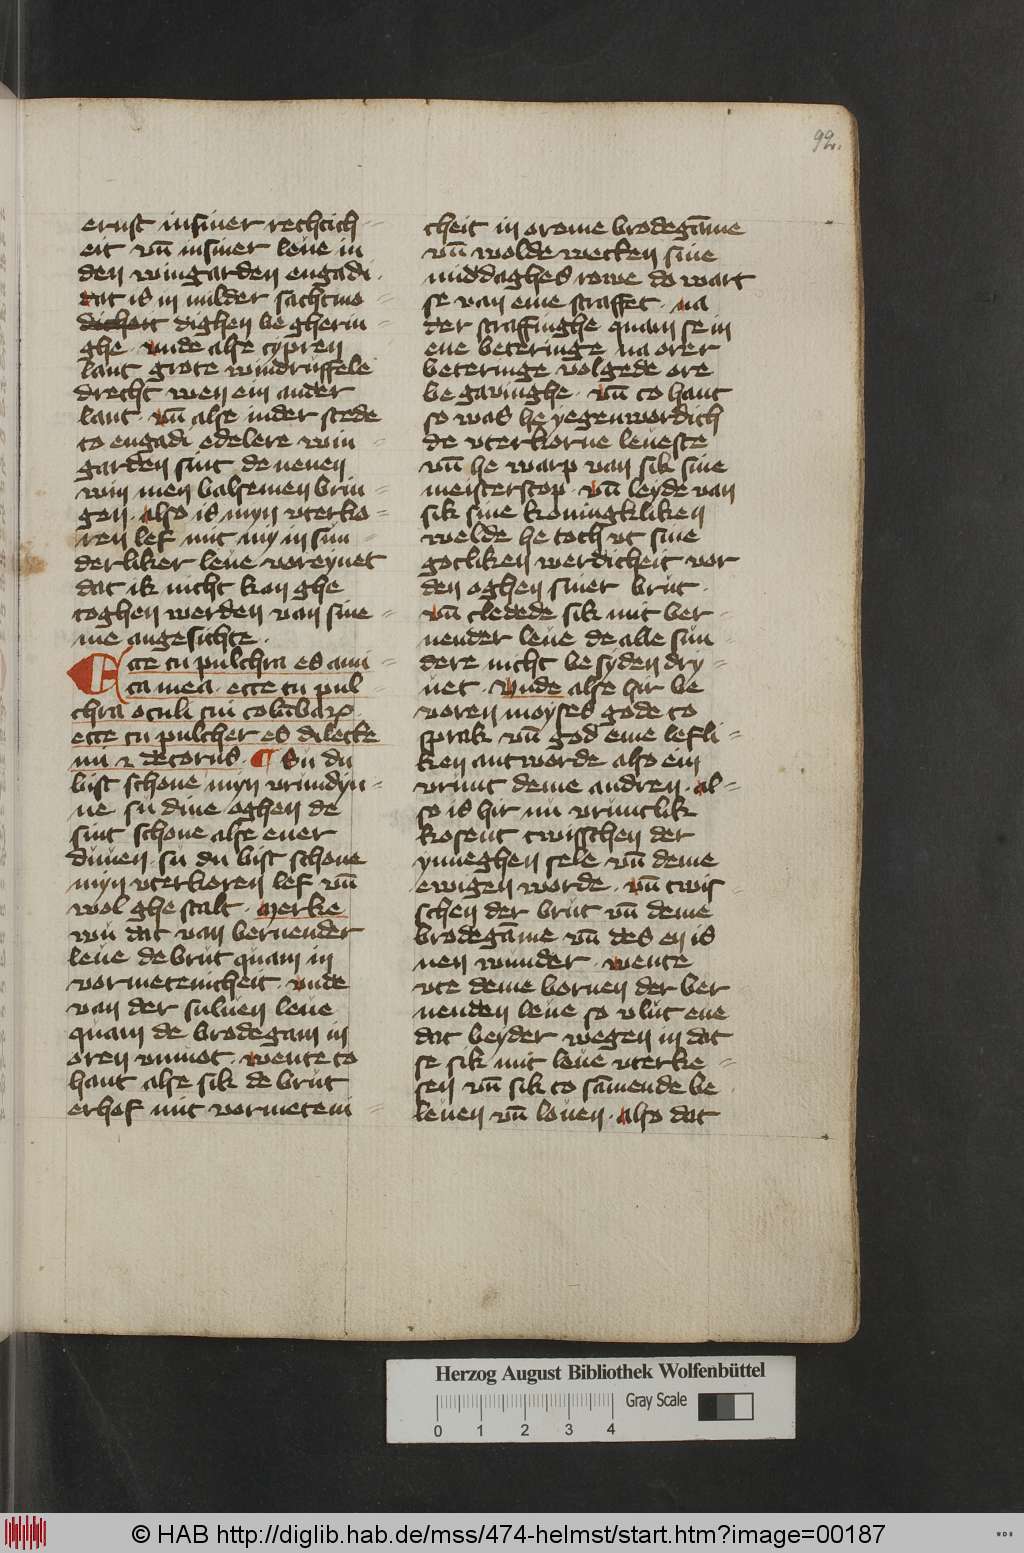 92.
ernst insiner rechtich
eit vn̄ insiner leue in
den wingarden engadi.
dat is in milder sachtmo
dichert dighen be gherin
ghe. vnde alse cypren
lant grote windruffele
drecht wen ein ander
lant. vn̄ alse inder stede
to engadi edelere win
garden sint de neuen
win men balsemen brin
gen. also is myn vterko
ren lef mit my in sun
derliker leue voreynet
dat ik nicht kan ghe
toghen werden van sine
me angesichte.
Ecce tu pulchra es ami
ca mea. ecce tu pul
chra oculi tui colūbaꝝ.
ecce tu pulcher es dilecte
mi ⁊ decorus. ¶ Su du
bist schone myn vrundyn
ne su dine oghen de
sint schone alse ener
duuen. su du bist schone
myn vterkoren lef vn̄
wol ghe stalt. Merke
wu dat van bernender
leue de brut quam in
vormetenicheit. vnde
van der suluen leue
quam de brodegam in
oren vnmot. wente to
hant alse sik de brut
erhof mit vormeteni
cheit in orome brodegāme
vn̄ wolde wecken sine
middaghes rowe do wart
se van eme straffet. na
der straffinghe quam se in
ene beteringe na orer
beteringe volgede ore
be gauinghe. vn̄ to hant
so was he yegenwordich
de vterkorne leueste
vn̄ he warp van sik sine
meisterscop. vn̄ leyde van
sik sine koningkliken
welde he toch vt sine
gotliken werdicheit vor
den oghen siner brut.
vn̄ cledede sik mit ber
nender leue de alle sun
dere nicht be syden dry
uet. vnde alse hir be
voren moyses gode to
sprak vn̄ god eme lefli
ken antworde also ein
vrunt deme andren. al
so is hir nu vruntlik
kosent twisschen der
ynneghen sele vn̄ deme
ewigen worde. vn̄ twis
schen der brut vn̄ deme
brodegāme vn̄ des en is
nen wunder. wente
vte deme bornen der ber
nenden leue so vlut ene
dat beyder wegen in dat
se sik mit leue vterke
sen vn̄ sik to sāmende be
leuen vn̄ louen. also dat
Herzog August Bibliothek Wolfenbüttel
Gray Scale
0 1 2 3 4
© HAB http://diglib.hab.de/mss/474-helmst/start.htm?image=00187